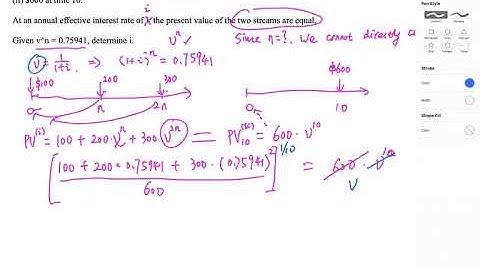 (ii) $600 at time 10.
At an annual effective interest rate of i the present value of the two streams are equal.
Given v^n = 0.75941, determine i.
vⁿ
Since n=? , we cannot directly
v = 1/(1+i) ⇒ (1+i)ⁿ = 0.75941
$100 200 300
0 n 2n
$600
0 10
PV₀⁽ⁱ⁾ = 100 + 200·vⁿ + 300 v²ⁿ = PV₁₀⁽ⁱⁱ⁾ = 600·v¹⁰
[(100 + 200·0.75941 + 300·(0.75941)²)/600]^(1/10) = 600·v¹⁰
v
Pen Style
Stroke
Color
Width
Stroke Fill
Color